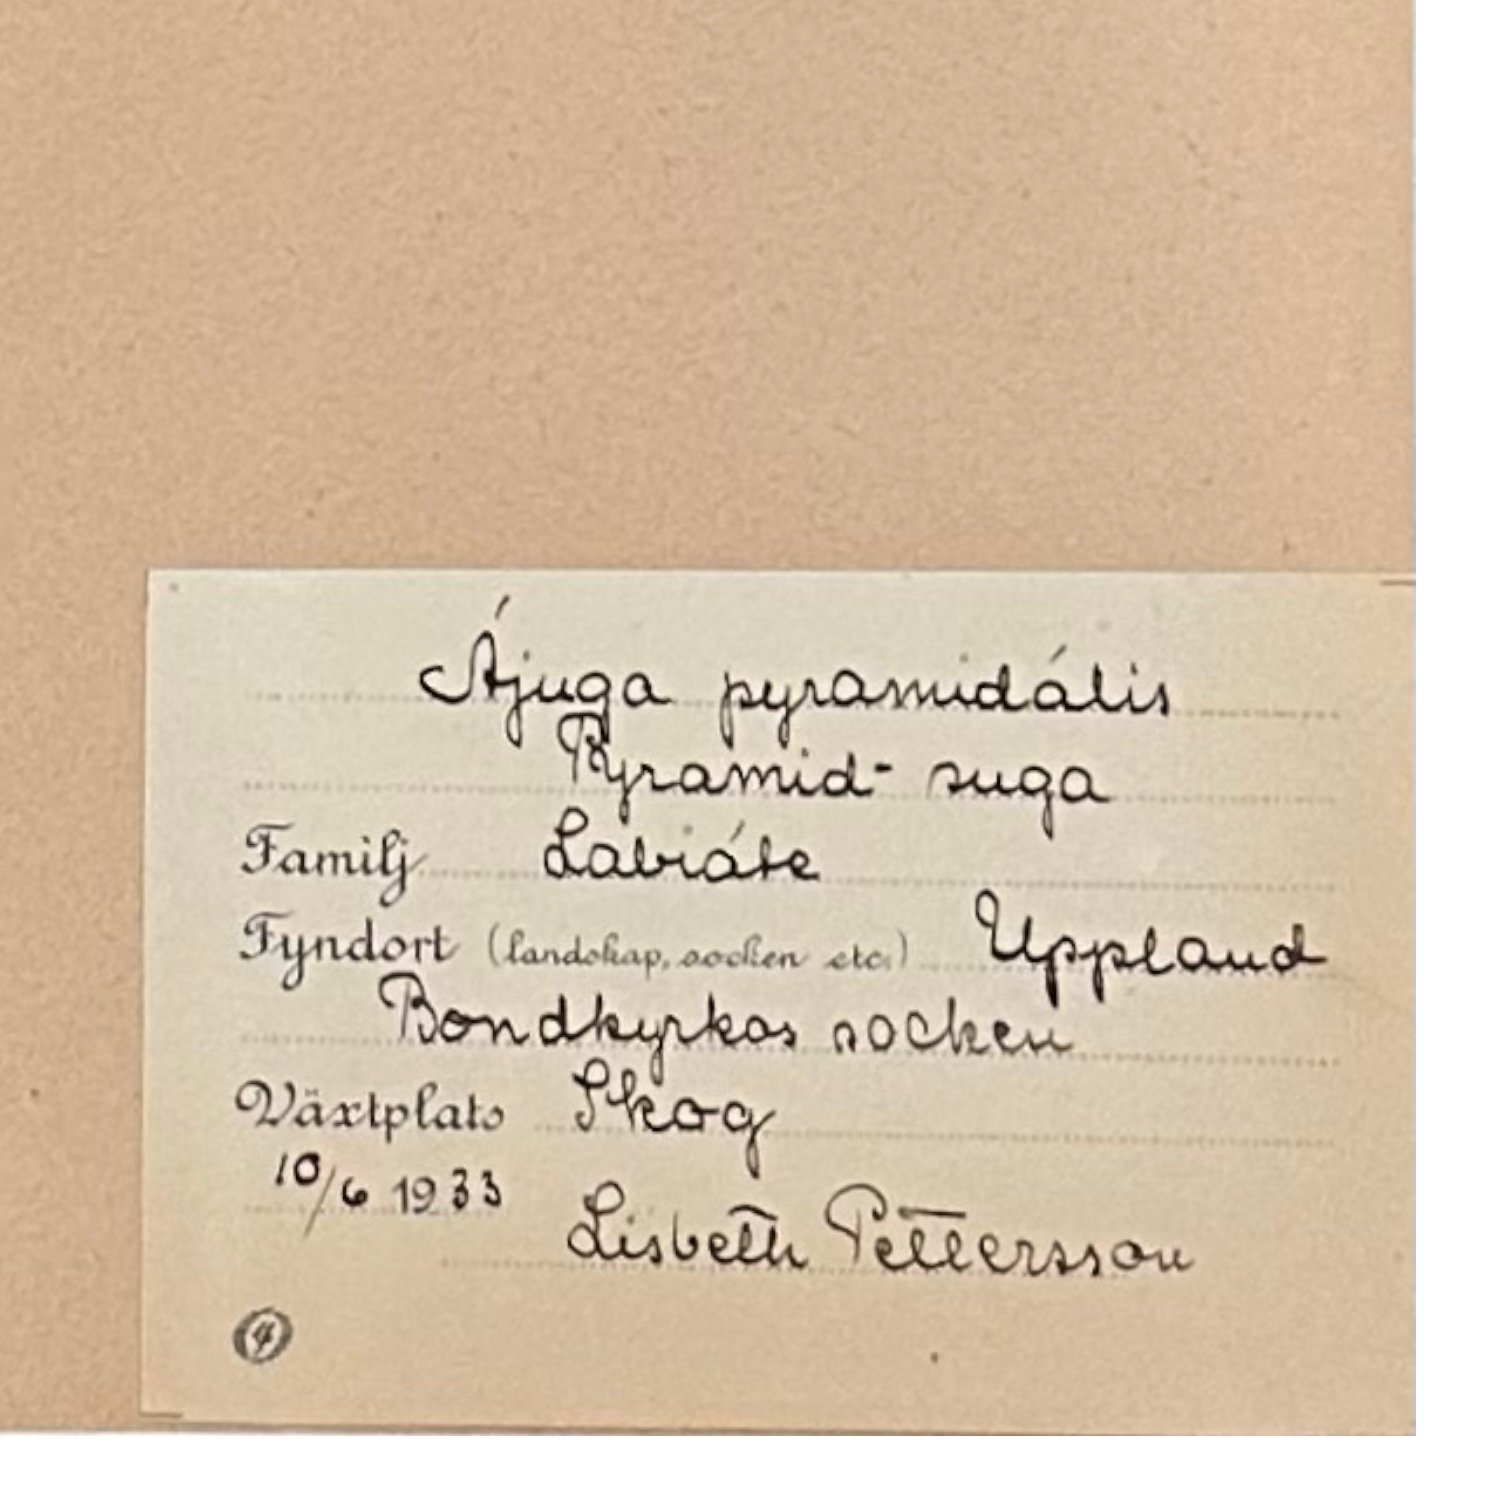 Ájuga pyramidális
Pyramid-suga
Familj Labiáte
Fyndort (landskap, socken etc.) Uppland
Bondkyrkos socken
Växtplats Skog
10/6 1933
Lisbeth Pettersson
4